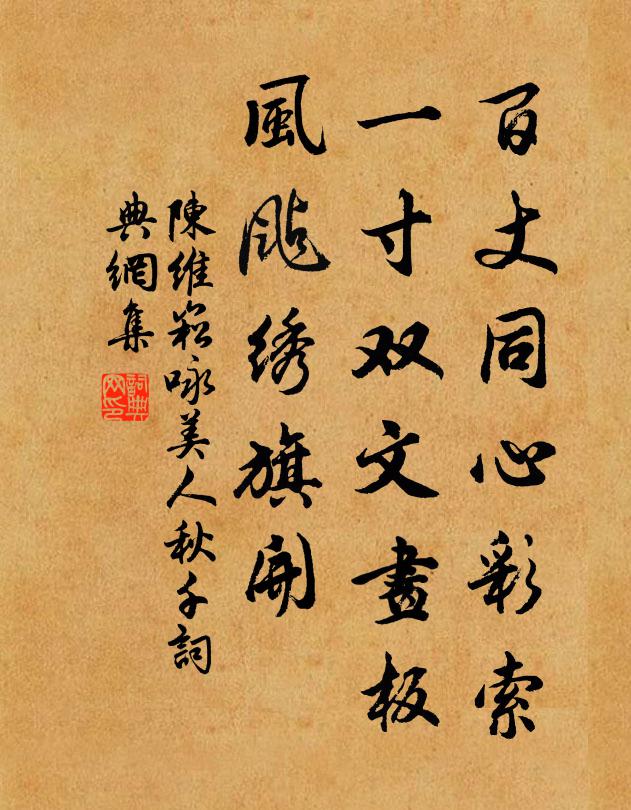 百丈同心彩索
一寸双文畫板
風颭绣旗開
陳維崧咏美人秋千詞
典網集
詞典網印